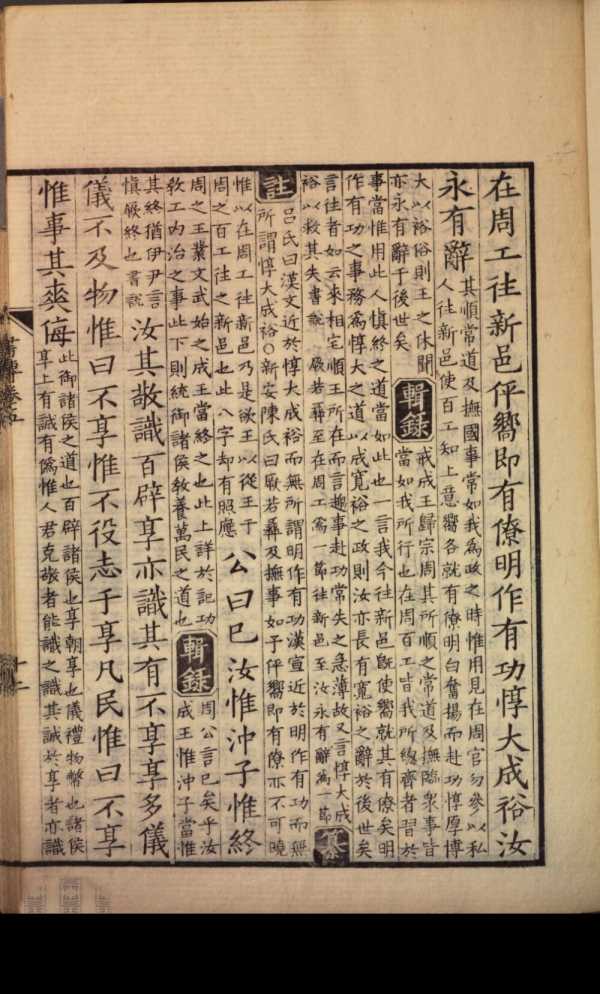 在周工往新邑伻嚮即有僚明作有功惇大成裕汝
永有辭
其順常道及撫國事常如我爲政之時惟用見在周官勿參以私
人往新邑使百工知上意嚮各就有僚明白奮揚而赴功惇厚博
大以裕俗則王之休聞
亦永有辭于後世矣
輯録
戒成王歸宗周其所順之常道及撫臨衆事皆
當如我所行也在周百工皆我所總齊者習於
事當惟用此人愼終之道當如此也一言我今往新邑旣使嚮就其有僚矣明
作有功之事務爲惇大之道以成寬裕之政則汝亦長有寬裕之辭於後世矣
言往者如云來相宅順王所在而言趣事赴功常失之急薄故又言惇大成
裕以救其失書說 厥若彝至在周工爲一節往新邑至汝永有辭爲一節
纂
註
呂氏曰漢文近於惇大成裕而無所謂明作有功漢宣近於明作有功而無
所謂惇大成裕○新安陳氏曰厥若彝及撫事如予伻嚮即有僚亦不可曉
惟以在周工往新邑乃是欲王以從王于
周之百工往之新邑也此八字却有照應
公曰已汝惟沖子惟終
周之王業文武始之成王當終之也此上詳於記功
敎工内治之事此下則統御諸侯敎養萬民之道也
輯録
周公言已矣乎汝
成王惟沖子當惟
其終猶伊尹言
愼厥終也書說
汝其敬識百辟享亦識其有不享享多儀
儀不及物惟曰不享惟不役志于享凡民惟曰不享
惟事其爽侮
此御諸侯之道也百辟諸侯也享朝享也儀禮物幣也諸侯
享上有誠有僞惟人君克敬者能識之識其誠於享者亦識
書傳卷五
十二